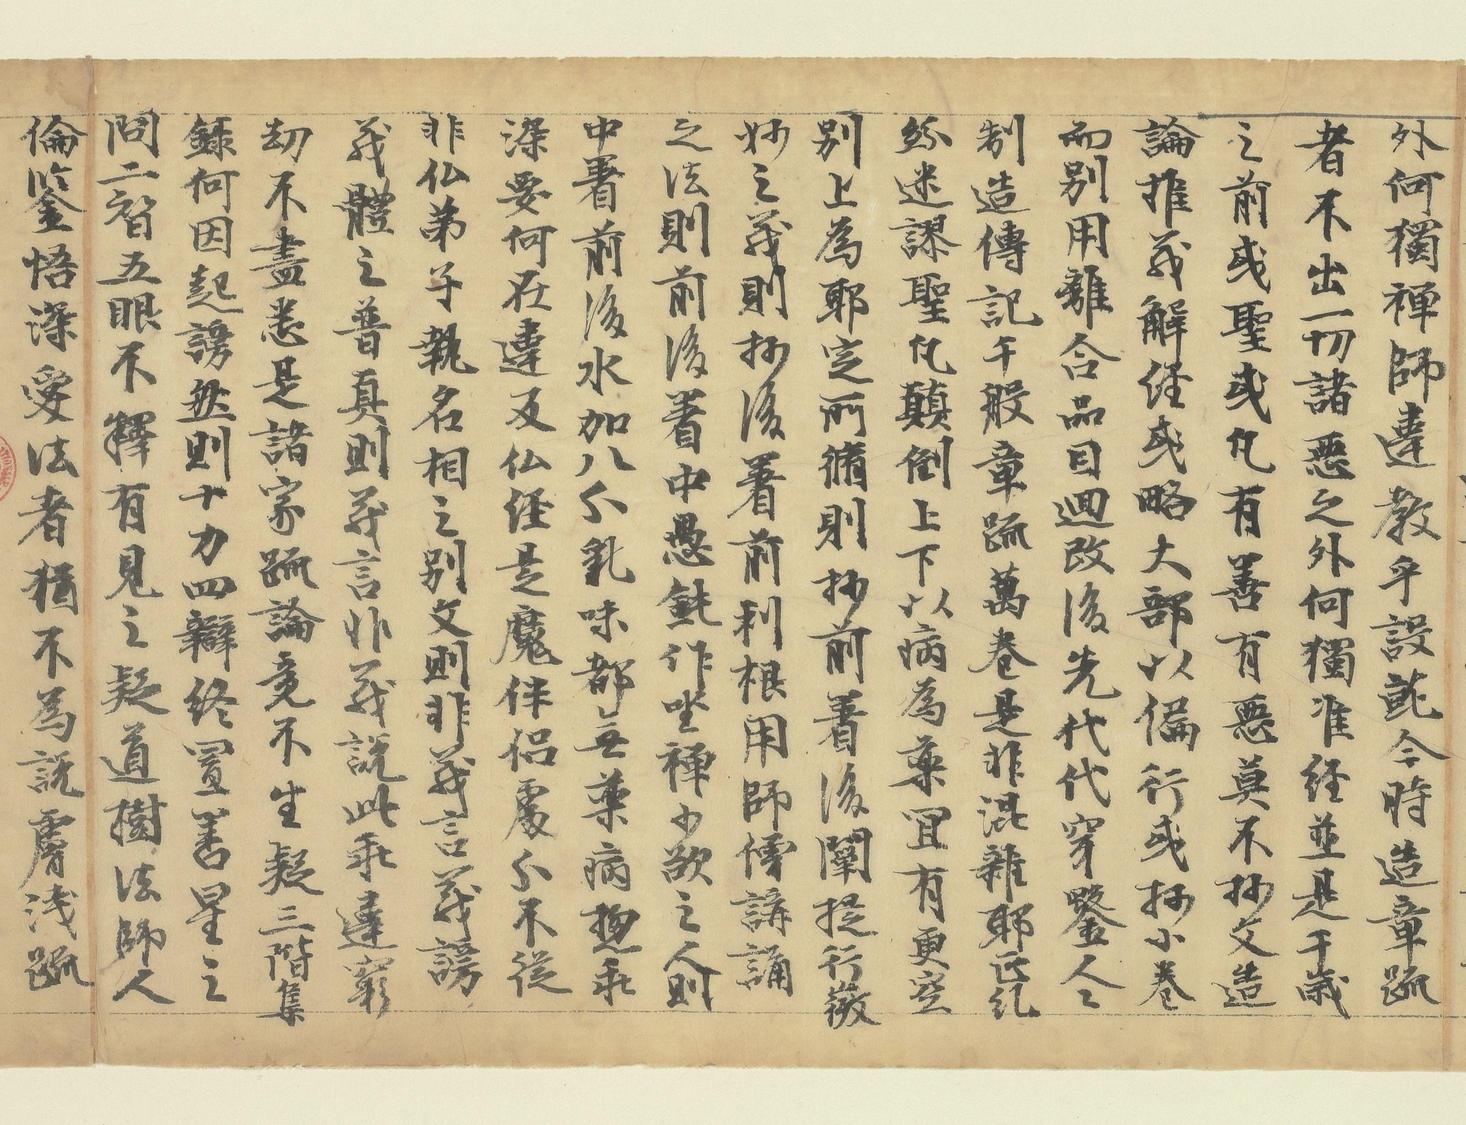 外何獨禅師違教乎設就今時造章疏
者不出一切諸悪之外何獨准経並是千歳
之前或聖或凡有善有悪莫不抄文造
論推義解経或略大部以偏行或抄小巻
而別用離合品目迴改後先代代穿鑿人々
制造傳記千般章疏萬巻是非混雜耶正乱
綸迷謬聖凡顛倒上下以病為薬冝有更空
別上為耶定所脩則抄前著後闡提行微
妙之義則抄後著前利根用師傍講誦
之法則前後著中愚鈍作坐禅少欲之人則
中著前後水加八分乳味都無薬病揔乖
深要何在違反仏経是魔伴侣處分不従
非仏弟子執名相之別文則非義言義謗
義體之普真則義言非義説此乖違窮
劫不盡悉是諸家疏論竟不生疑三階集
録何因起謗然則十力四辯終置善星之
問二智五眼不釋有見之疑道樹法師人
倫鉴悟深愛法者猶不為説膚浅疏